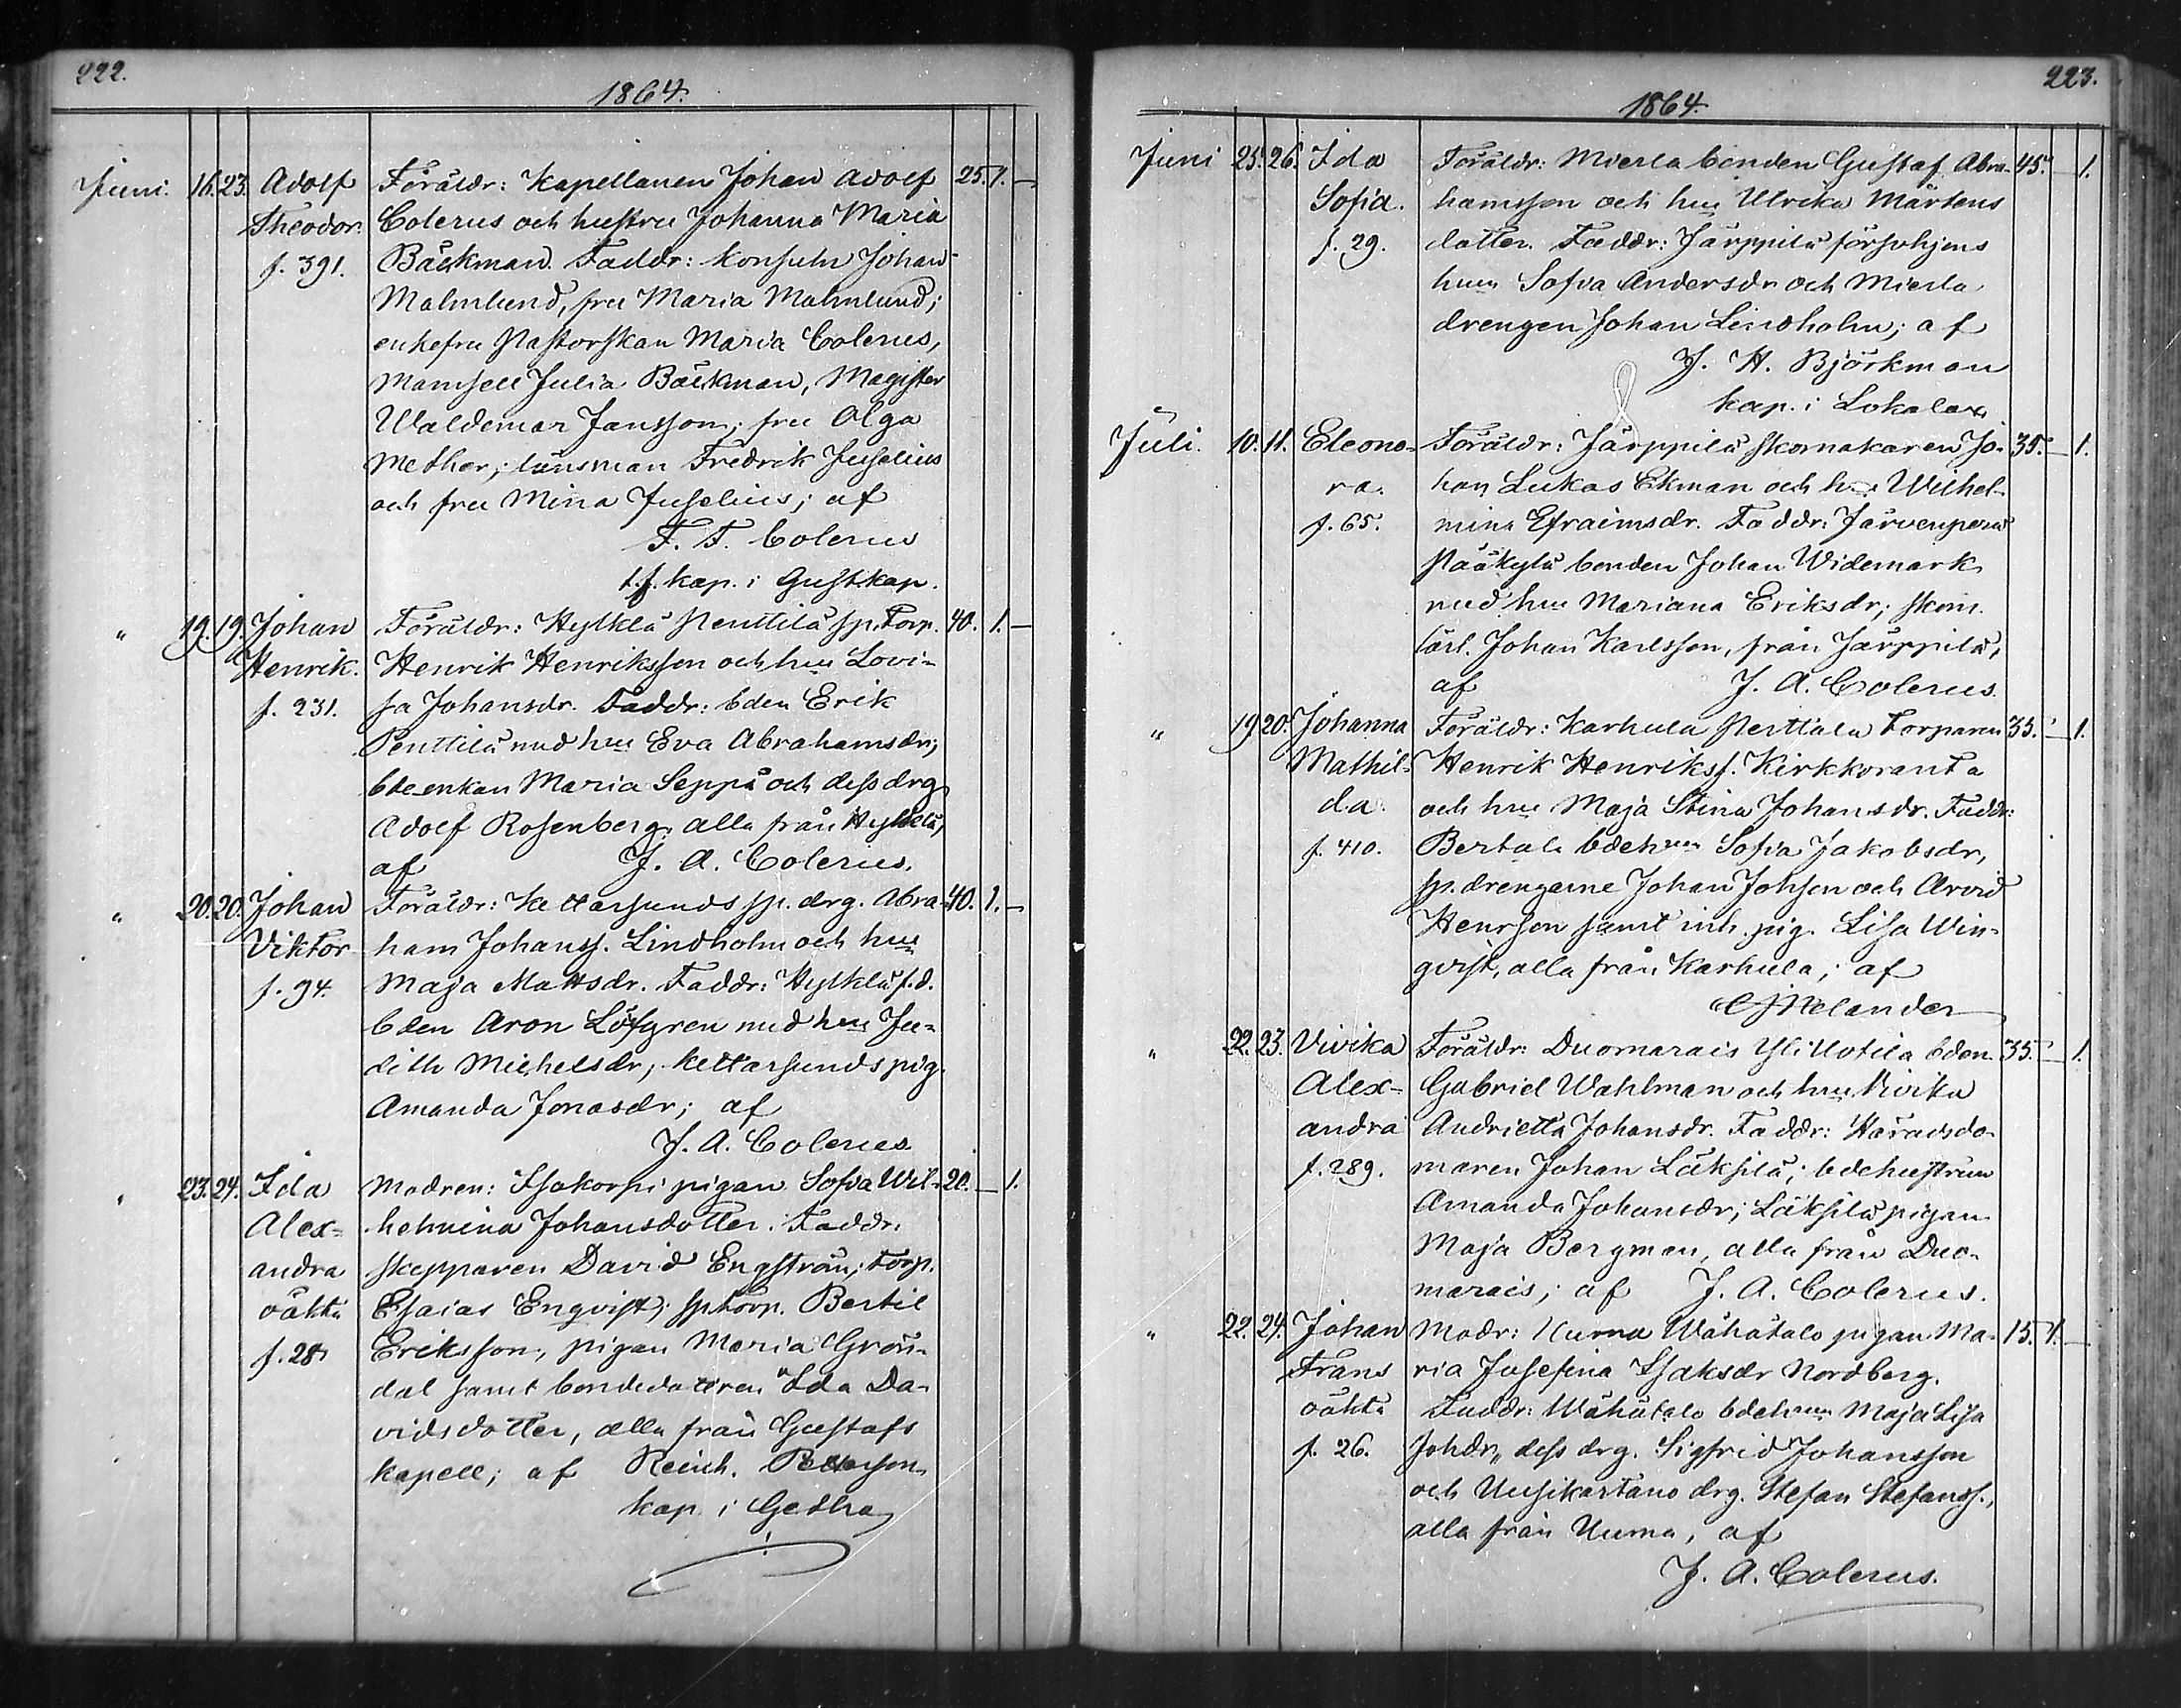 222.
1864.
Juni. 16. 23. Adolf Föräldr: Kapellanen Johan Adolf 25. 1. —
Theodor. Colerus och hustru Johanna Maria
f. 391. Bäckman. Faddr: Konsuln Johan
Malmlund, fru Maria Malmlund;
enkefru Pastorskan Maria Colerus,
Mamsell Julia Bäckman, Magister
Waldemar Jansson; fru Olga
Mether; länsman Fredrik Juselius
och fru Mina Juselius; af
F. F. Colerus
t.f. kap. i Gustkap.
" 19. 19. Johan Föräldr: Hylklä Penttilä sp. Torp. 40. 1. —
Henrik. Henrik Henriksson och hu Lovi-
f. 231. sa Johansdr. Faddr: bden Erik
Penttilä med hu Eva Abrahamsdr;
bde enkan Maria Seppä och dess drg
Adolf Rosenberg, alla från Hylklä,
af J. A. Colerus.
" 20. 20. Johan Föräldr: Kettarsunds sp. drg. Abra- 40. 1. —
Viktor ham Johanss. Lindholm och hu
f. 94. Maja Mattsdr. Faddr: Hylklä f.d.
bden Aron Löfgren med hu Ju-
dith Michelsdr, Kettarsunds pig.
Amanda Jonasdr; af
J. A. Colerus
" 23. 24. Ida Modren: Isokorpi pigan Sofia Wil- 20. — 1.
Alex- helmina Johansdotter. Faddr:
andra skepparen David Engström; Torp.
oäkta Esaias Engvist; sp torp. Bertil
f. 28 Eriksson, pigan Maria Grön-
dal samt bondedottren Ida Da-
vidsdotter, alla från Gustafs
kapell; af Reinh. Petterson
kap. i Getha
223.
1864.
Juni 25. 26. Ida Föräldr: Mierla bonden Gustaf Abra- 45. — 1.
Sofia. hamsson och hu Ulrika Mårtens
f. 29. dotter. Faddr: Järppilä
hun Sofia Andersdr och Mierla
drengen Johan Lindholm; af
J. H. Björkman
kap. i Lokalax
Juli. 10. 11. Eleono- Föräldr: Järppilä skomakaren Jo- 35. — 1.
ra. han Lukas Ekman och hu Wilhel-
f. 65. mina Efraimsdr. Faddr: Järvenperä
Pääkylä bonden Johan Widemark
med hu Mariana Eriksdr; skom.
lärl. Johan Karlsson, från Järppilä,
af J. A. Colerus.
" 19 20. Johanna Föräldr: Karhula Perttala Torparen 35. — 1.
Mathil- Henrik Henrikss. Kirkkoranta
da. och hu Maja Stina Johansdr. Faddr:
f. 410. Bertala bdehun Sofia Jakobsdr,
sp. drengarne Johan Johsson och Arvid
Henrson samt inh. pig. Lisa Win-
qvist, alla från Karhula; af
C J Melander
" 22. 23. Vivika Föräldr: Duomarais Yli Uotila bden 35. — 1.
Alex- Gabriel Wahlman och hu Vivika
andra Andrietta Johansdr. Faddr: Häradsdo-
f. 289. maren Johan Läksilä; bdehustrun
Amanda Johansdr; Läksilä pigan
Maja Bergman, alla från Duo-
marais; af J. A. Colerus.
" 22. 24. Johan Modr: Nurma Wähätalo pigan Ma- 15. 1. —
Frans ria Josefina Isaksdr Nordberg.
oäkta Faddr: Wähätalo bdehun Maja Lisa
f. 26. Johdr, dess drg. Sigfrid Johansson
och Uusikartano drg. Stefan Stefanss.,
alla från Nurma, af
J. A. Colerus.